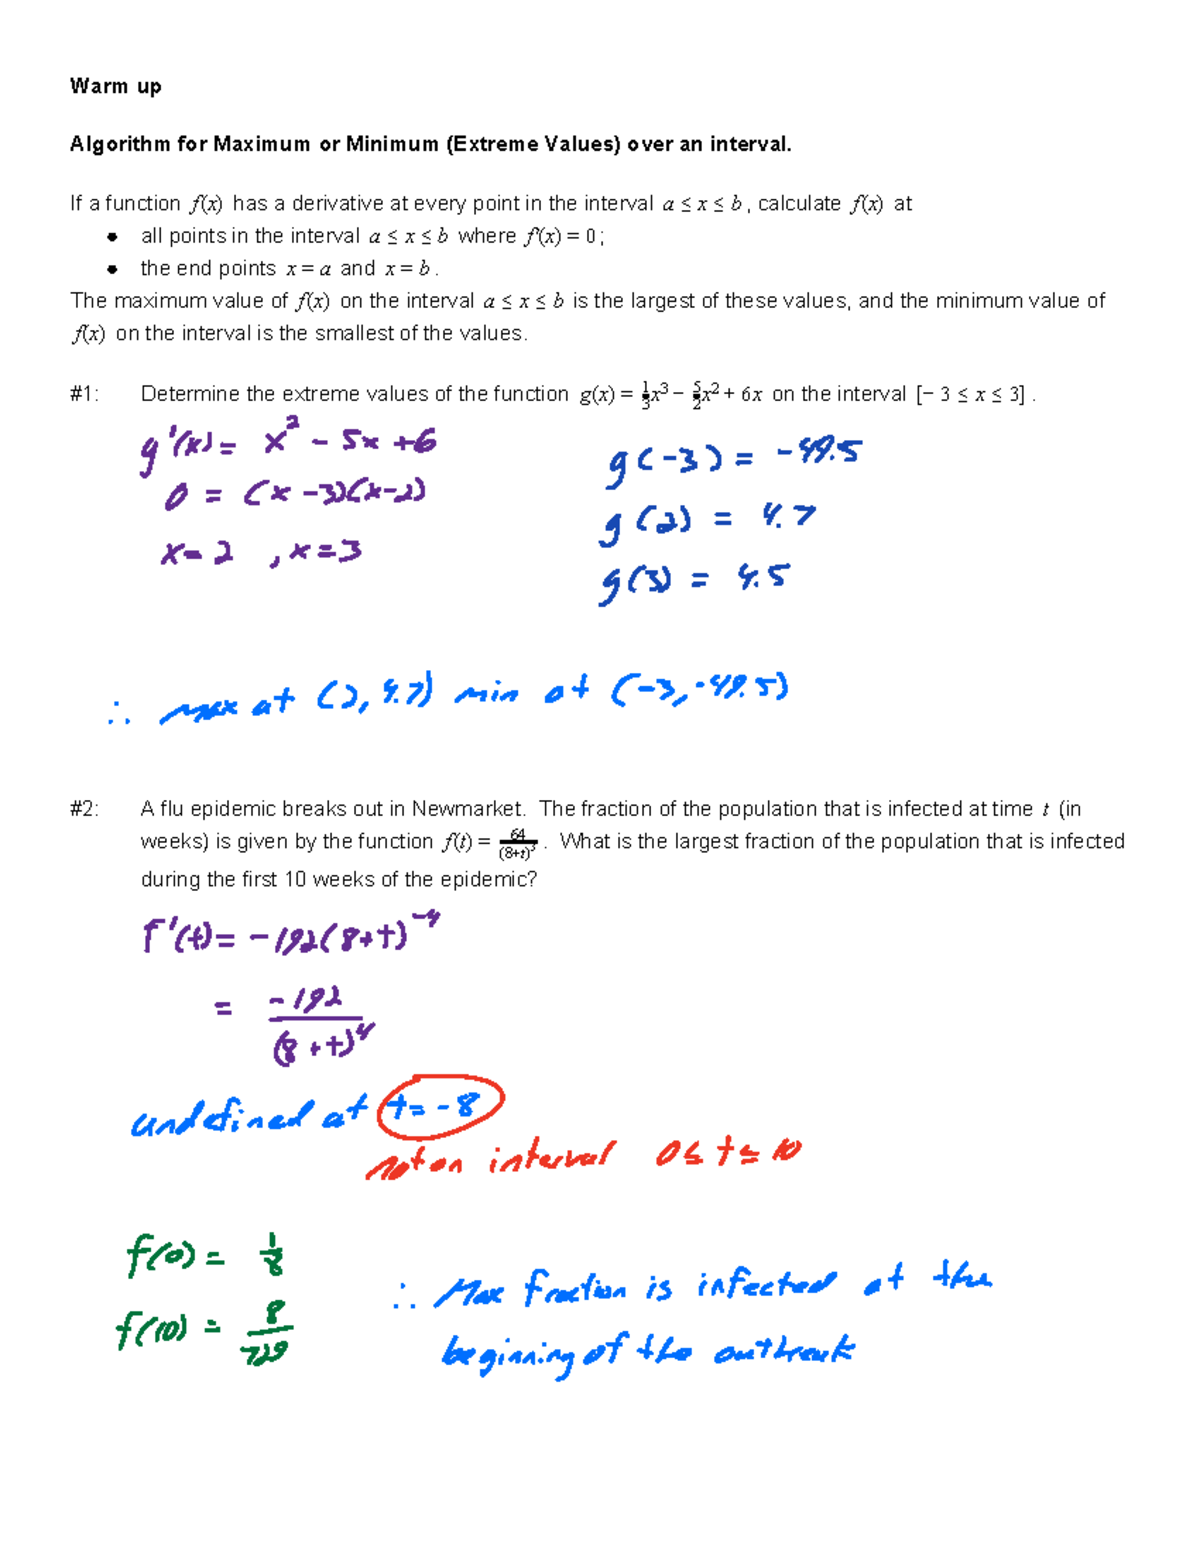 Warm up
Algorithm for Maximum or Minimum (Extreme Values) over an interval.
If a function f(x) has a derivative at every point in the interval a ≤ x ≤ b , calculate f(x) at
● all points in the interval a ≤ x ≤ b where f'(x) = 0 ;
● the end points x = a and x = b .
The maximum value of f(x) on the interval a ≤ x ≤ b is the largest of these values, and the minimum value of
f(x) on the interval is the smallest of the values.
#1: Determine the extreme values of the function g(x) = 1/3 x³ − 5/2 x² + 6x on the interval [− 3 ≤ x ≤ 3] .
g'(x) = x² - 5x + 6
0 = (x - 3)(x - 2)
x = 2 , x = 3
g(-3) = -49.5
g(2) = 4.7
g(3) = 4.5
∴ max at (2, 4.7) min at (-3, -49.5)
#2: A flu epidemic breaks out in Newmarket. The fraction of the population that is infected at time t (in
weeks) is given by the function f(t) = 64/(8+t)³ . What is the largest fraction of the population that is infected
during the first 10 weeks of the epidemic?
f'(t) = -192(8+t)⁻⁴
= -192/(8+t)⁴
undefined at t = -8
not on interval 0 ≤ t ≤ 10
f(0) = 1/8
f(10) = 8/729
∴ Max fraction is infected at the
beginning of the outbreak